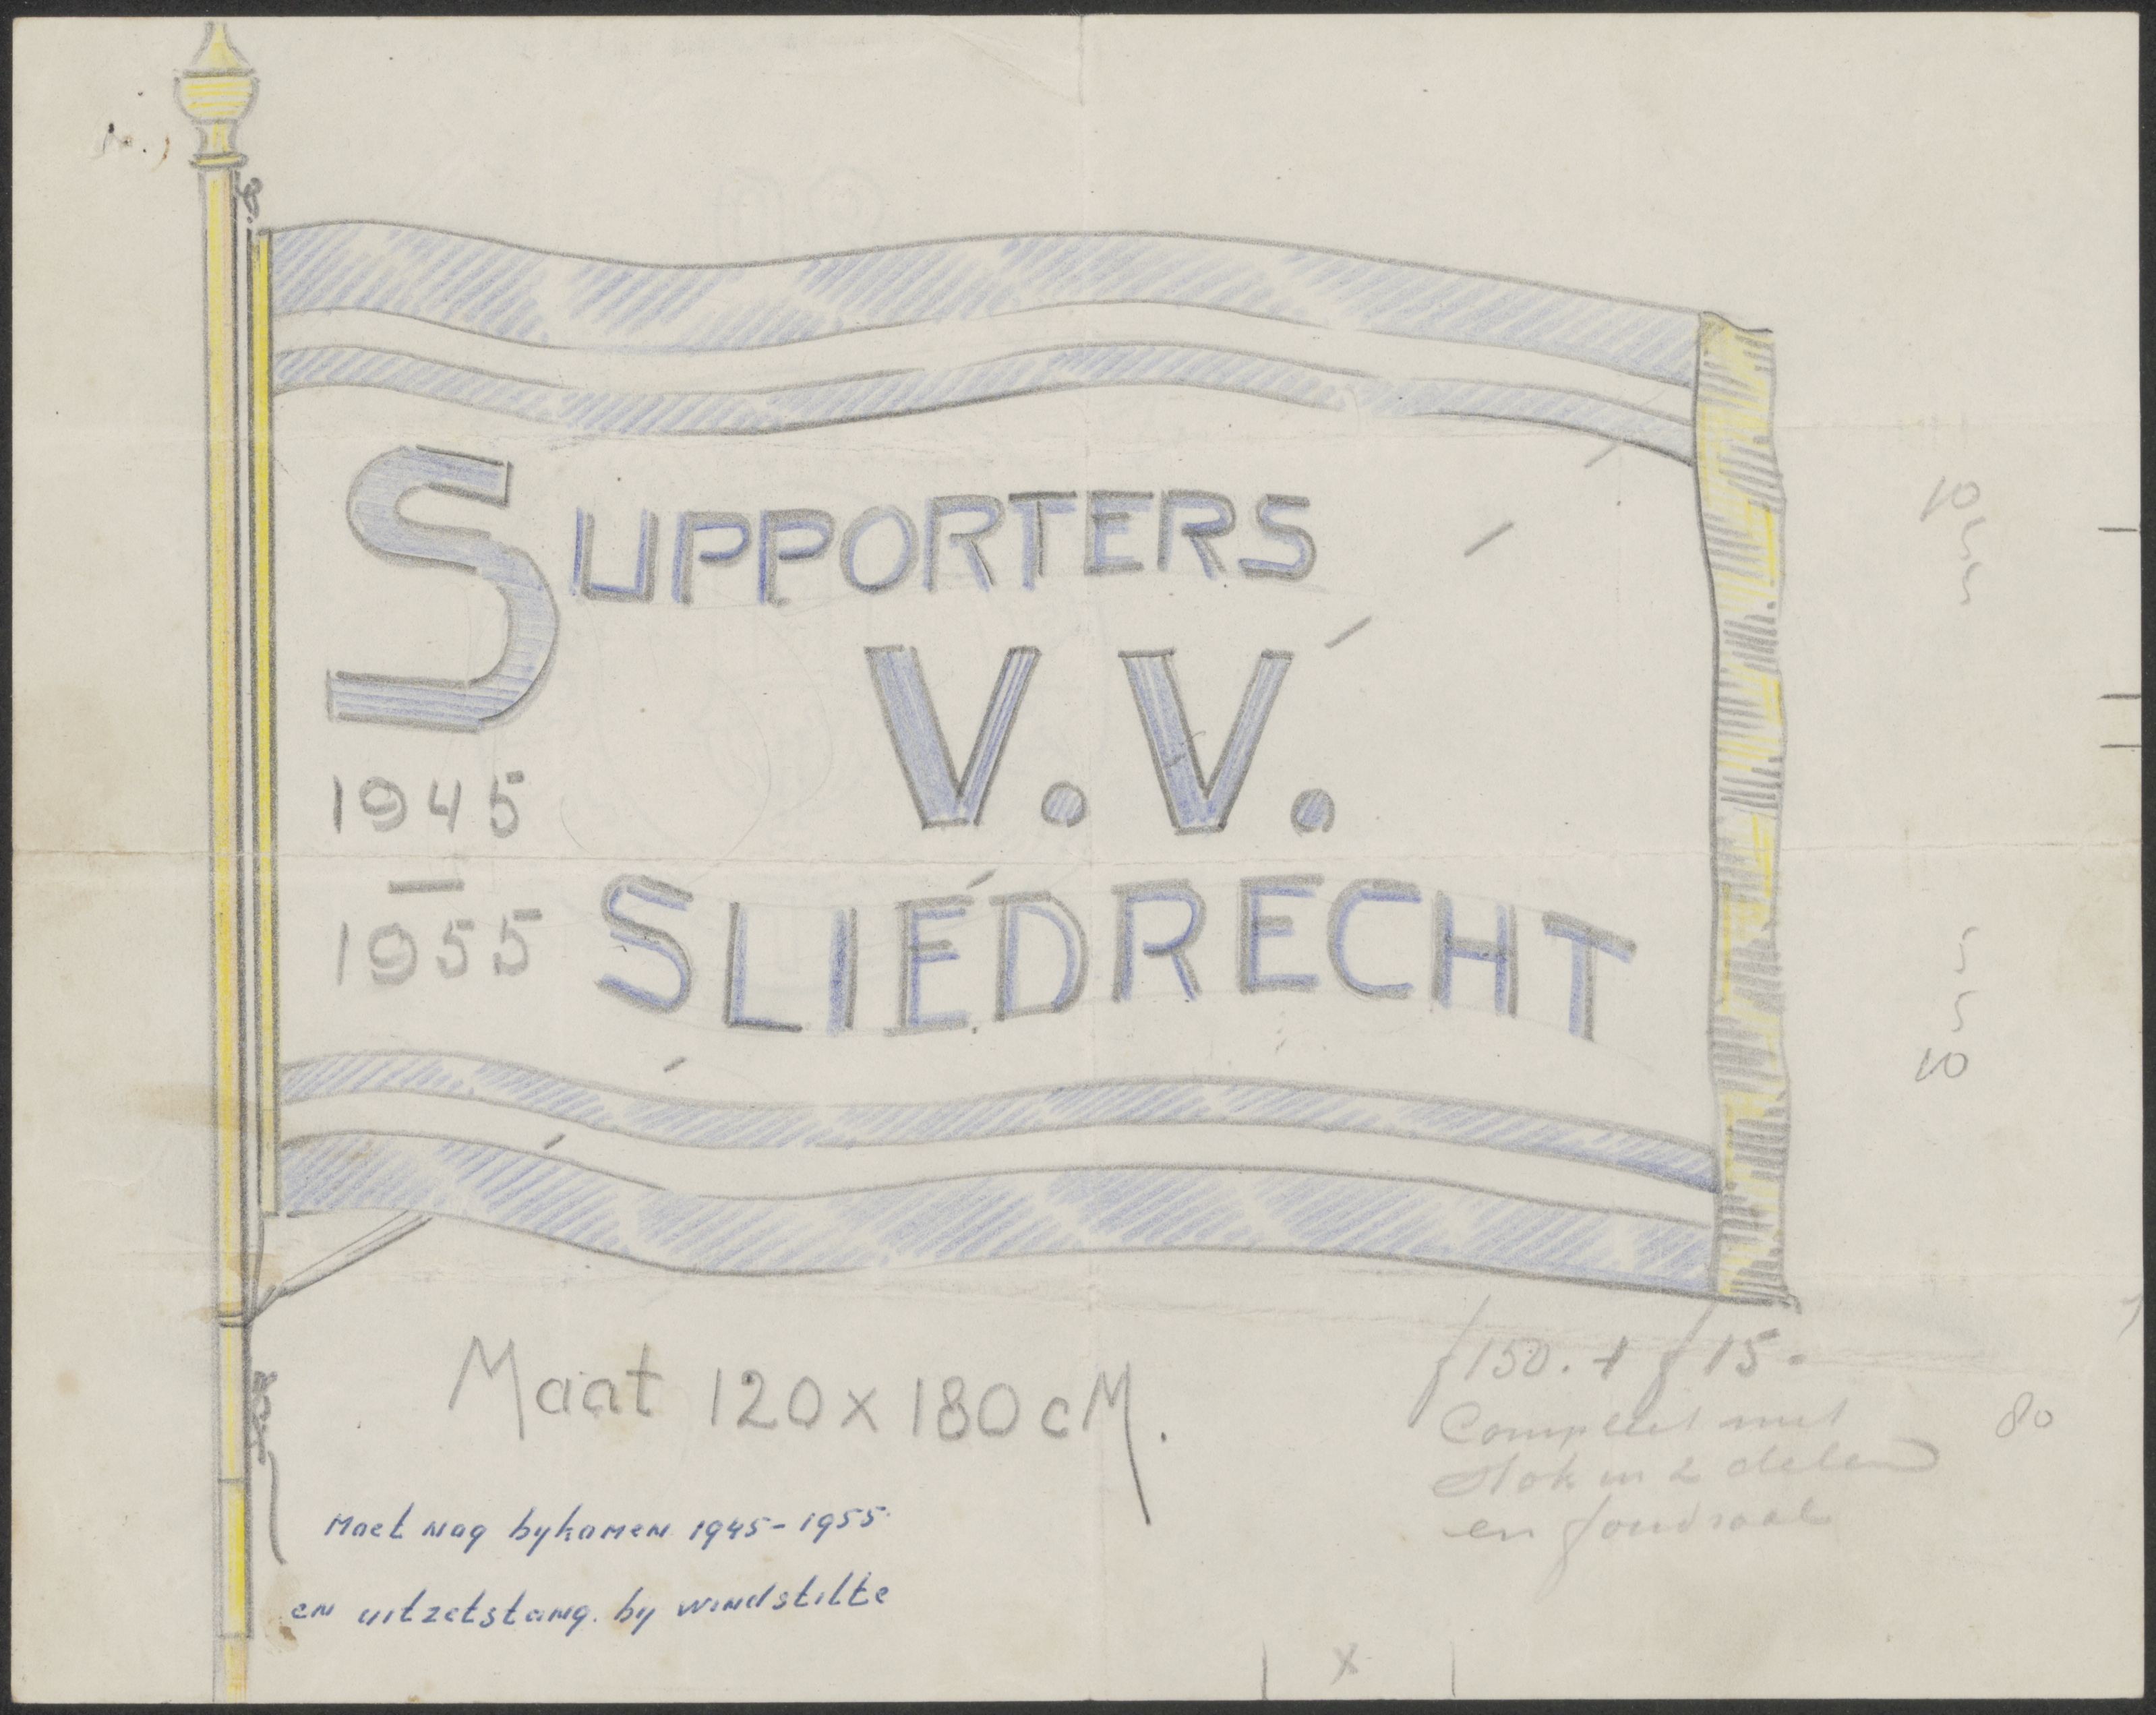 No. 1
SUPPORTERS
V.V.
SLIEDRECHT
1945
—
1955
10
5
5
5
5
10
Maat 120 x 180 cM.
Moet nog bykomen 1945-1955
en uitzetstang. by windstilte
f 150. + f 15-
Compleet met
stok in 2 delen
en foudraal
80
x